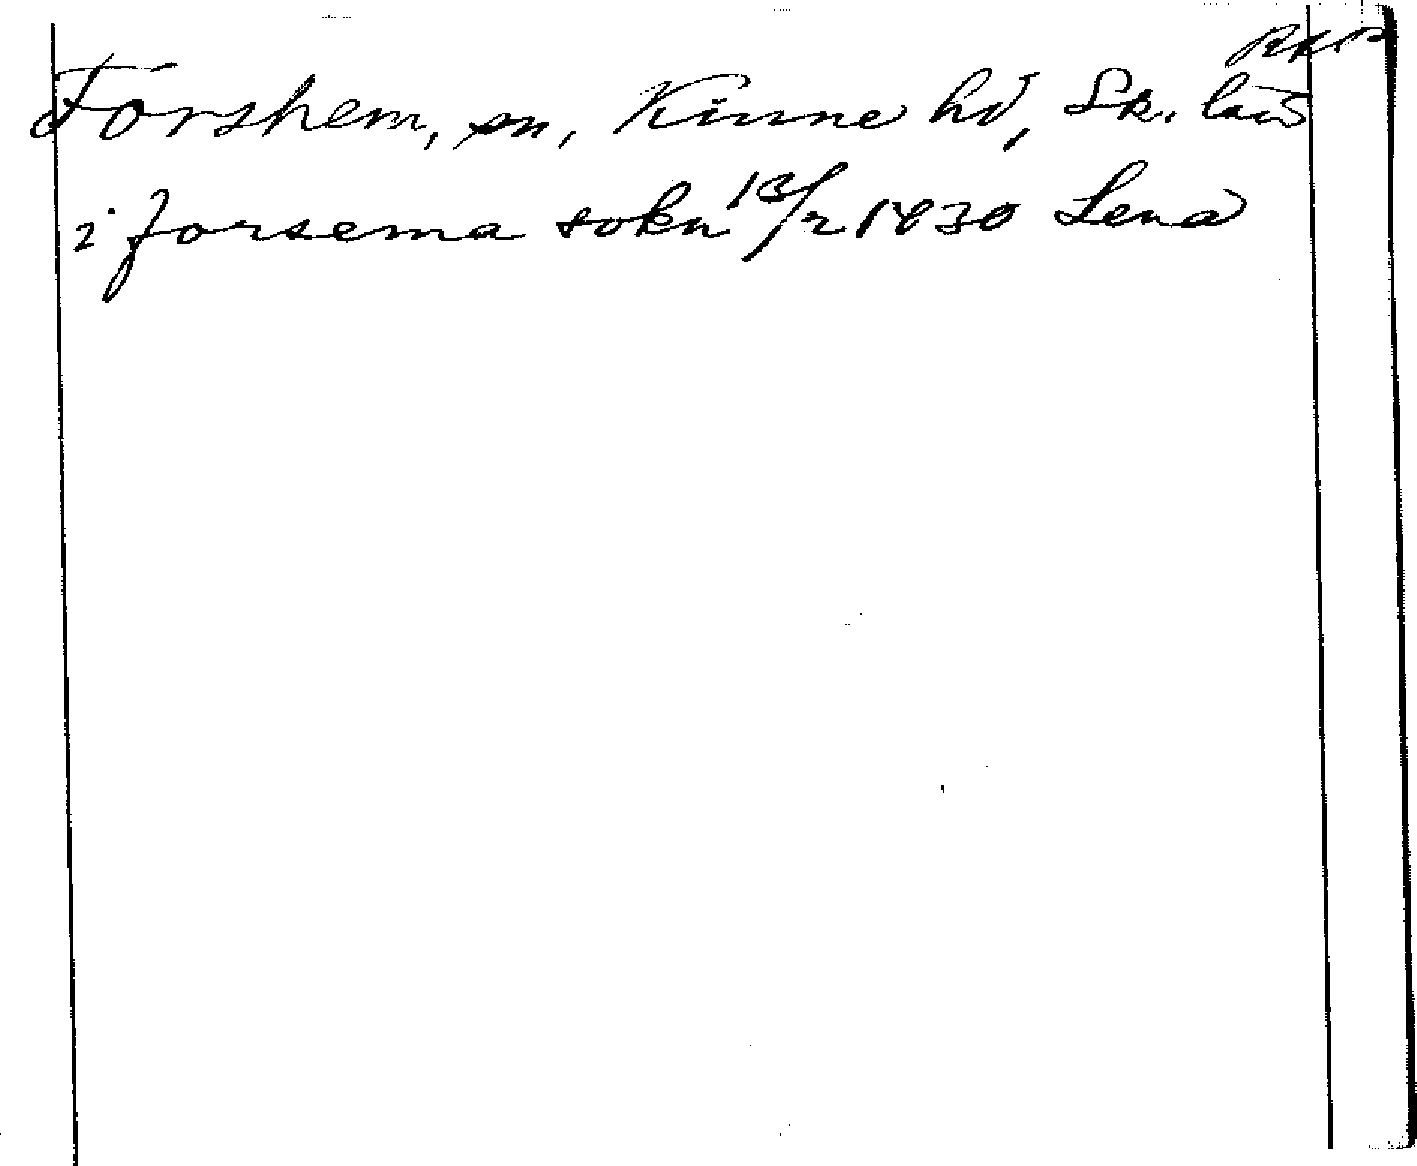 RAP
Forshem, sn, Kinne hd, Sk. län
i forsema sokn 13/2 1430 Lena